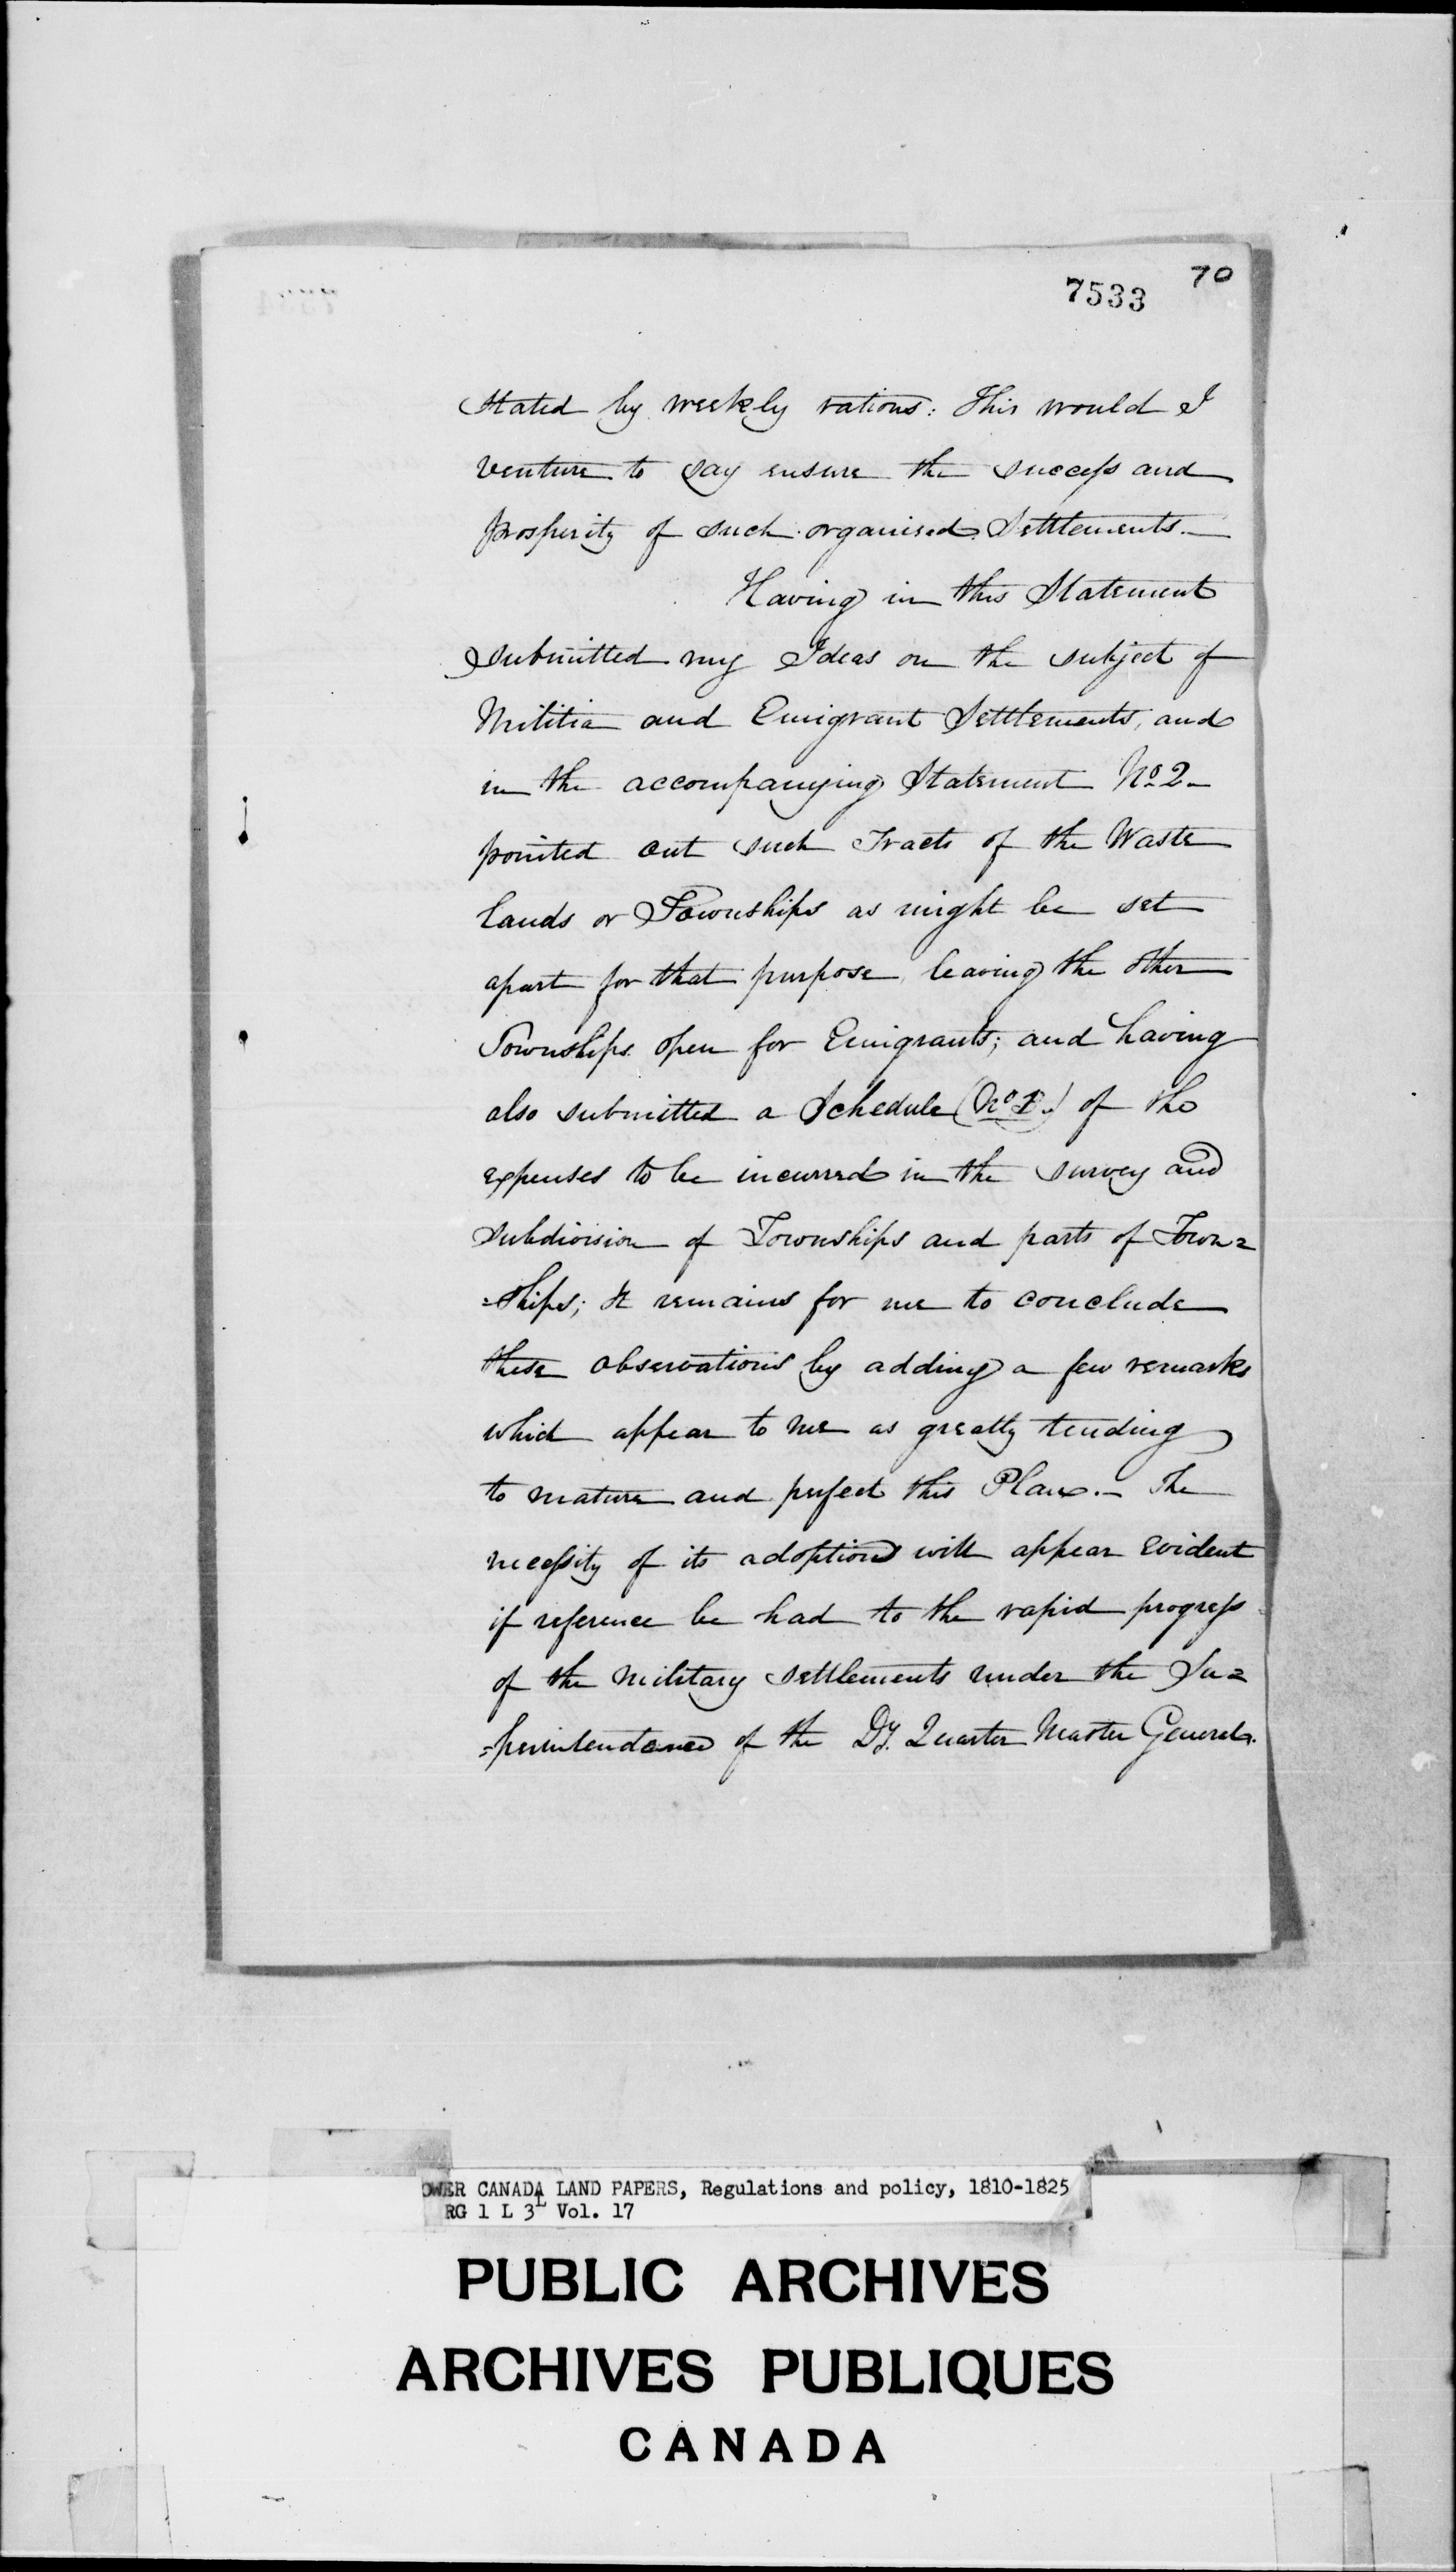 70
7533
stated by weekly rations: This would I
venture to say ensure the success and
prosperity of such organised Settlements.—
Having in this Statement
submitted my Ideas on the subject of
Militia and Emigrant Settlements, and
in the accompanying Statement No. 2—
pointed out such Tracts of the Waste
lands or Townships as might be set
apart for that purpose, leaving the other
Townships open for Emigrants; and having
also submitted a Schedule (No. 1.) of the
expenses to be incurred in the survey and
subdivision of Townships and parts of Town=
=ships; It remains for me to conclude
these observations by adding a few remarks
which appear to me as greatly tending
to mature and perfect this Plan.— The
necessity of its adoption will appear evident
if reference be had to the rapid progress
of the Military settlements under the Su=
=perintendance of the Dy. Quarter Master General.
OWER CANADA LAND PAPERS, Regulations and policy, 1810-1825
RG 1 L 3L Vol. 17
PUBLIC ARCHIVES
ARCHIVES PUBLIQUES
CANADA